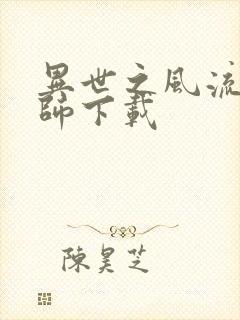 異世之風流
師下載
陳昊芝